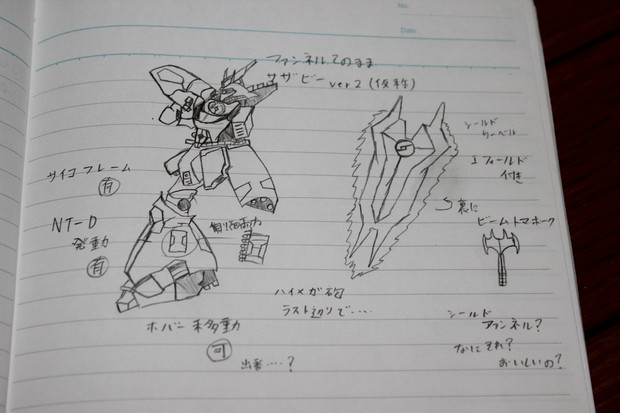 No.
Date
ファンネルてのまま
サザビー ver2 (仮称)
シールド
サーベル
Iフィールド
付き
サイコフレーム
有
裏に
ビームトマホーク
NT-D
発動
有
ハイメガ砲
ラスト辺りで‥‥
ホバー移動
可
出番‥‥?
シールド
ファンネル?
なにそれ?
おいしいの?